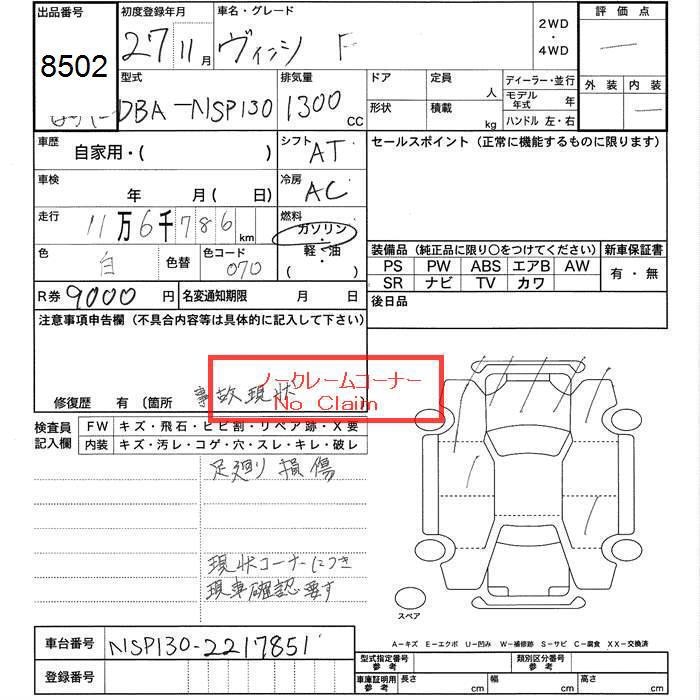 出品番号
8502
初度登録年月
27 11 月
車名・グレード
ヴィッツ F
2WD
・
4WD
評価点
外装 内装
型式
DBA-NSP130
排気量
1300 CC
ドア
形状
定員
人
積載
kg
ディーラー・並行
モデル年式 年
ハンドル 左・右
車歴
自家用・( )
シフト
AT
セールスポイント (正常に機能するものに限ります)
車検
年 月( 日)
冷房
AC
走行
11万6千786 km
燃料
ガソリン
・
軽・油
( )
色
白
色替
色コード
070
装備品(純正品に限り○をつけてください)
PS PW ABS エアB AW
SR ナビ TV カワ
新車保証書
有・無
R券 9000 円
名変通知期限 月 日
後日品
注意事項申告欄(不具合内容等は具体的に記入して下さい)
修復歴 有 〔箇所 事故現状
ノークレームコーナー
No Claim
検査員
記入欄
FW キズ・飛石・ヒビ割・リペア跡・X要
内装 キズ・汚レ・コゲ・穴・スレ・キレ・破レ
足廻り損傷
現状コーナーにつき
現車確認要す
スペア
A−キズ E−エクボ U−凹み W−補修跡 S−サビ C−腐食 XX−交換済
車台番号 NSP130-2217851
登録番号
型式指定番号
参考
類別区分番号
参考
車庫証明用
参考
長さ cm 幅 cm 高さ cm